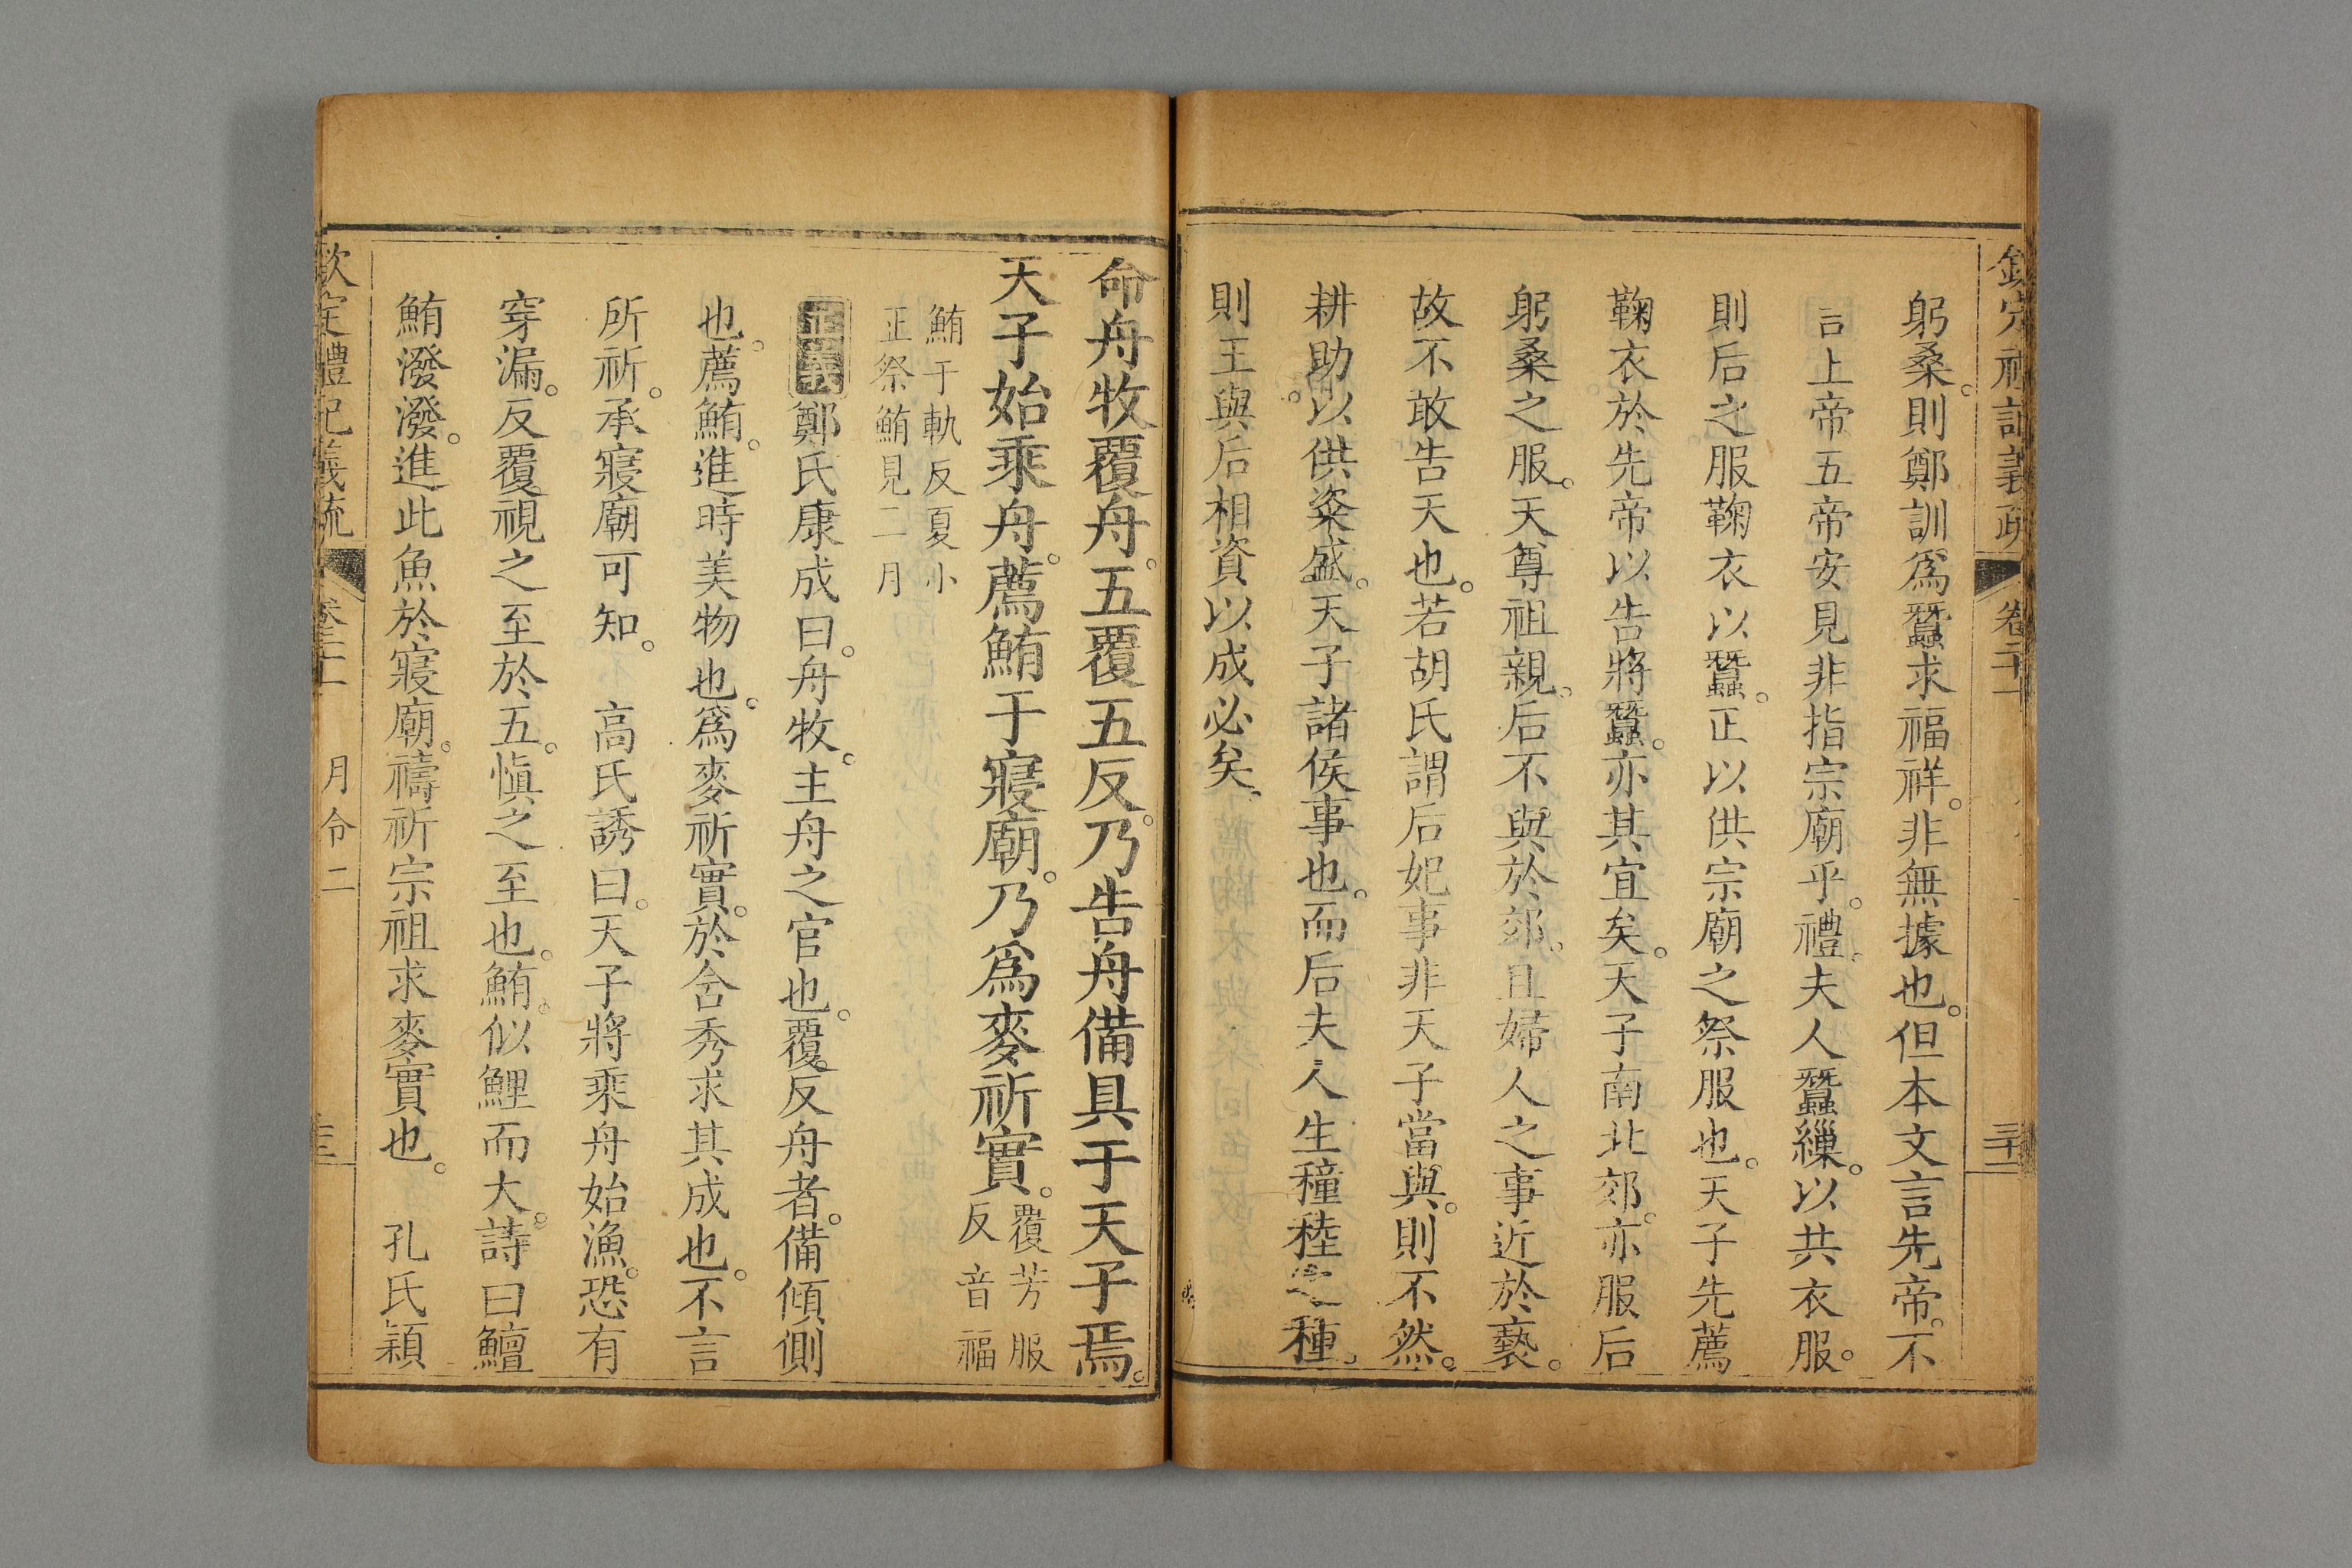 欽定禮記義疏 卷二十一 三十二
躬桑。則鄭訓爲蠶求福祥。非無據也。但本文言先帝。不
言上帝五帝安見非指宗廟乎。禮。夫人蠶繅。以共衣服。
則后之服鞠衣以蠶。正以供宗廟之祭服也。天子先薦
鞠衣於先帝以告將蠶。亦其宜矣。天子南北郊。亦服后
躬桑之服。天尊祖親。后不與於郊。且婦人之事近於褻。
故不敢告天也。若胡氏謂后妃事非天子當與。則不然。
耕助。以供粢盛。天子諸侯事也。而后夫人生穜稑之種。
則王與后相資以成必矣。
命舟牧覆舟。五覆五反。乃告舟備具于天子焉。
天子始乘舟。薦鮪于寢廟。乃爲麥祈實。覆芳服
反音福
鮪于軌反夏小
正祭鮪見二月
正義鄭氏康成曰。舟牧。主舟之官也。覆反舟者。備傾側
也。薦鮪。進時美物也。爲麥祈實。於含秀求其成也。不言
所祈。承寢廟可知。 高氏誘曰。天子將乘舟始漁。恐有
穿漏。反覆視之至於五。愼之至也。鮪。似鯉而大。詩曰鱣
鮪潑潑。進此魚於寢廟。禱祈宗祖求麥實也。 孔氏穎
欽定禮記義疏 卷二十一 月令二